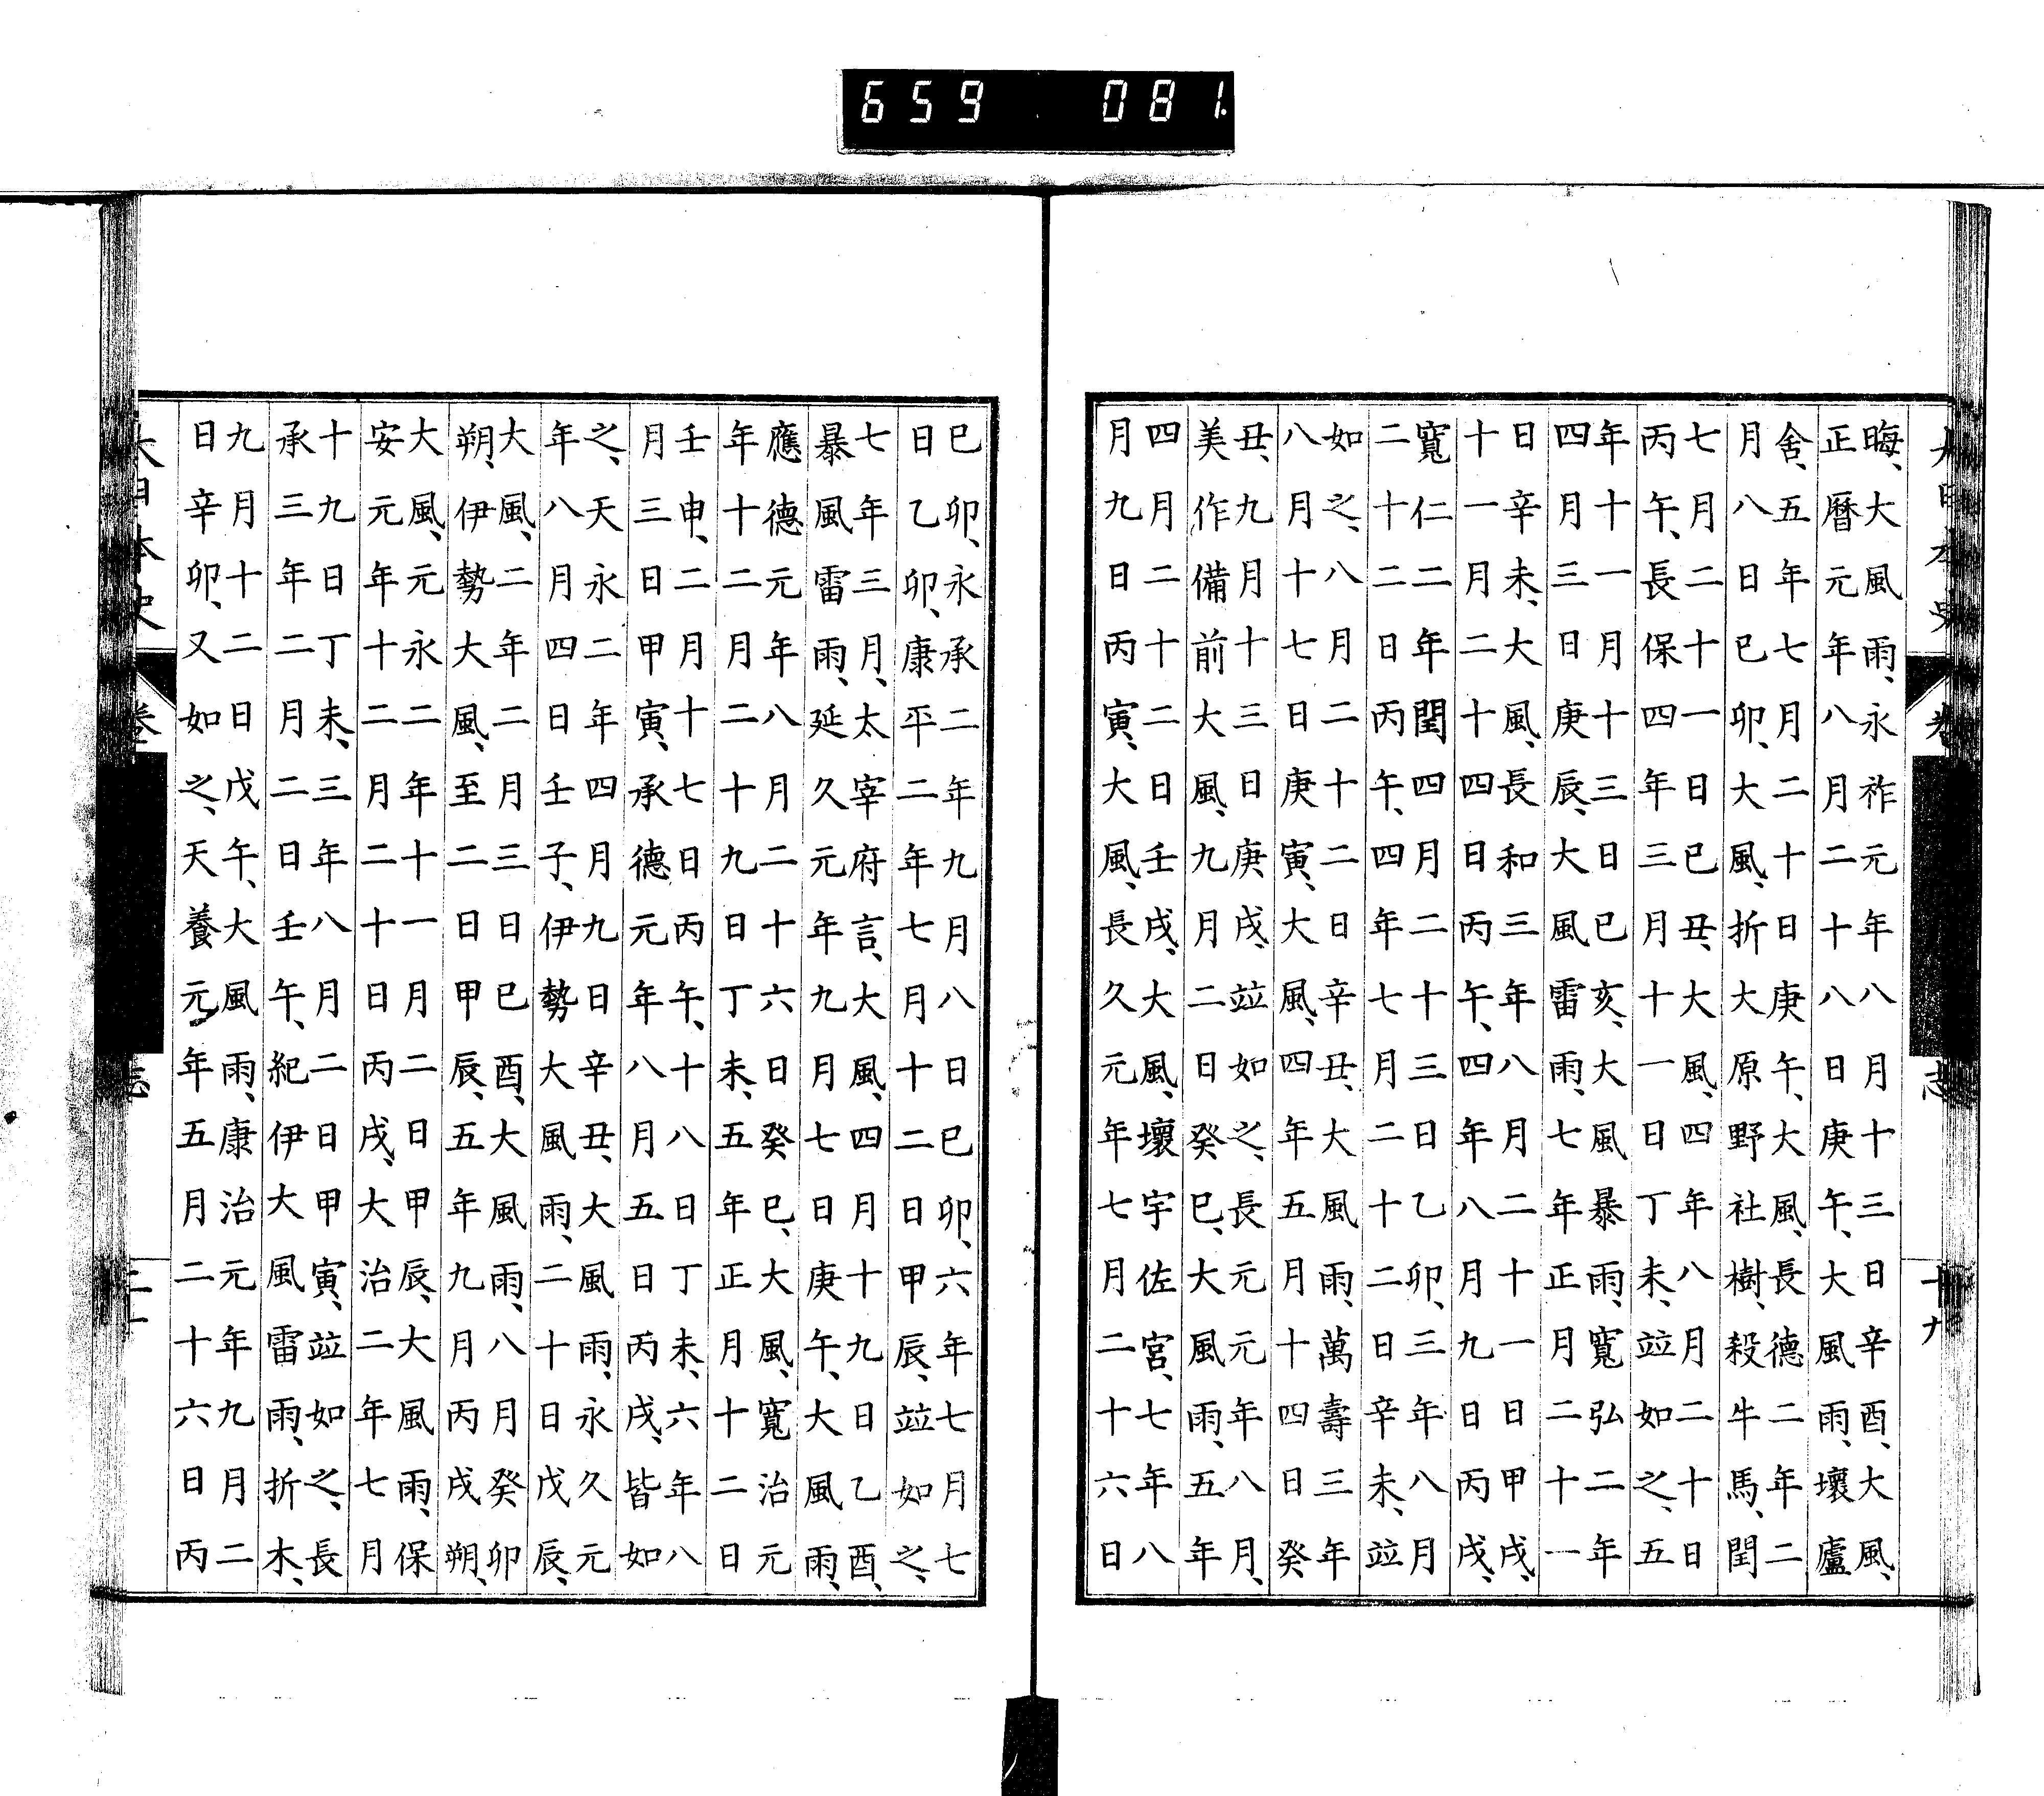 659 081
大日本史 卷 志 十九
晦、大風雨、永祚元年八月十三日辛酉、大風、
正曆元年八月二十八日庚午、大風雨、壞廬
舍、五年七月二十日庚午、大風、長德二年二
月八日巳卯、大風、折大原野社樹、殺牛馬、閏
七月二十一日巳丑、大風、四年八月二十日
丙午、長保四年三月十一日丁未、竝如之、五
年十一月十三日巳亥、大風暴雨、寬弘二年
四月三日庚辰、大風雷雨、七年正月二十一
日辛未、大風、長和三年八月二十一日甲戌、
十一月二十四日丙午、四年八月九日丙戌、
寬仁二年閏四月二十三日乙卯、三年八月
二十二日丙午、四年七月二十二日辛未、竝
如之、八月二十二日辛丑、大風雨、萬壽三年
八月十七日庚寅、大風、四年五月十四日癸
丑、九月十三日庚戌、竝如之、長元元年八月、
美作備前大風、九月二日癸巳、大風雨、五年
四月二十二日壬戌、大風、壞宇佐宮、七年八
月九日丙寅、大風、長久元年七月二十六日
巳卯、永承二年九月八日巳卯、六年七月七
日乙卯、康平二年七月十二日甲辰、竝如之、
七年三月、太宰府言、大風、四月十九日乙酉、
暴風雷雨、延久元年九月七日庚午、大風雨、
應德元年八月二十六日癸巳、大風、寬治元
年十二月二十九日丁未、五年正月十二日
壬申、二月十七日丙午、十八日丁未、六年八
月三日甲寅、承德元年八月五日丙戌、皆如
之、天永二年四月九日辛丑、大風雨、永久元
年八月四日壬子、伊勢大風雨、二十日戊辰、
大風、二年二月三日巳酉、大風雨、八月癸卯
朔、伊勢大風、至二日甲辰、五年九月丙戌朔、
大風、元永二年十一月二日甲辰、大風雨、保
安元年十二月二十日丙戌、大治二年七月
十九日丁未、三年八月二日甲寅、竝如之、長
承三年二月二日壬午、紀伊大風雷雨、折木、
九月十二日戊午、大風雨、康治元年九月二
日辛卯、又如之、天養元年五月二十六日丙
大日本史 卷 志